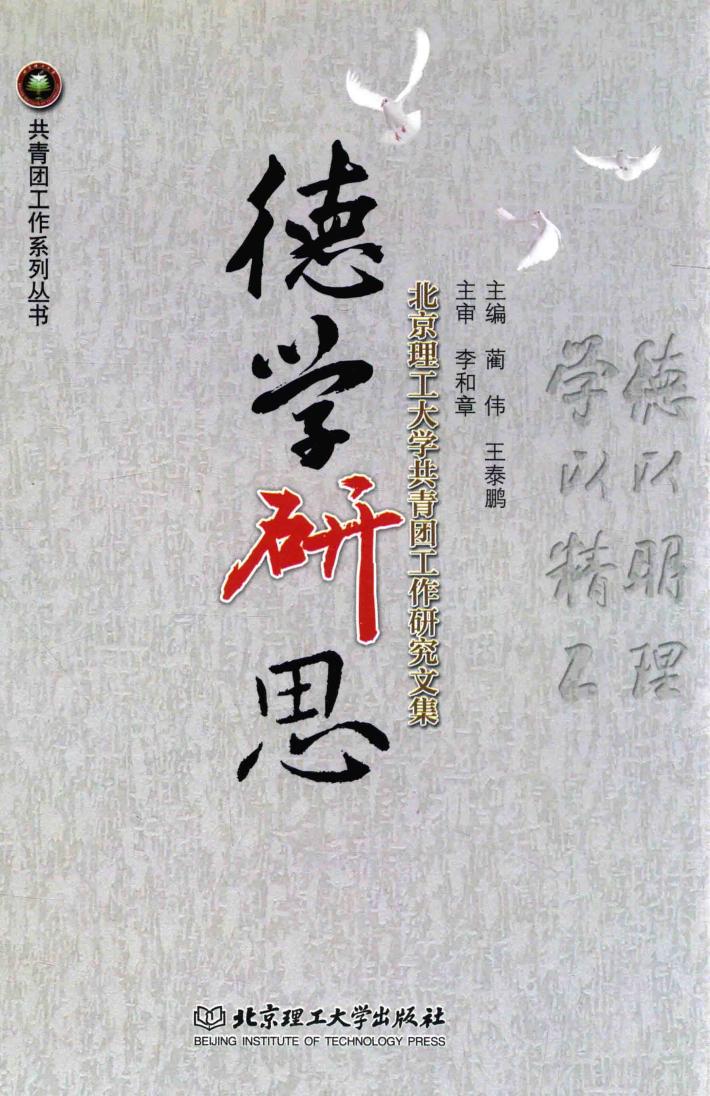 共青团工作系列丛书
德学研思
北京理工大学共青团工作研究文集
主编 蔺 伟 王泰鹏
主审 李和章
德以明理
学以精工
北京理工大学出版社
BEIJING INSTITUTE OF TECHNOLOGY PRESS